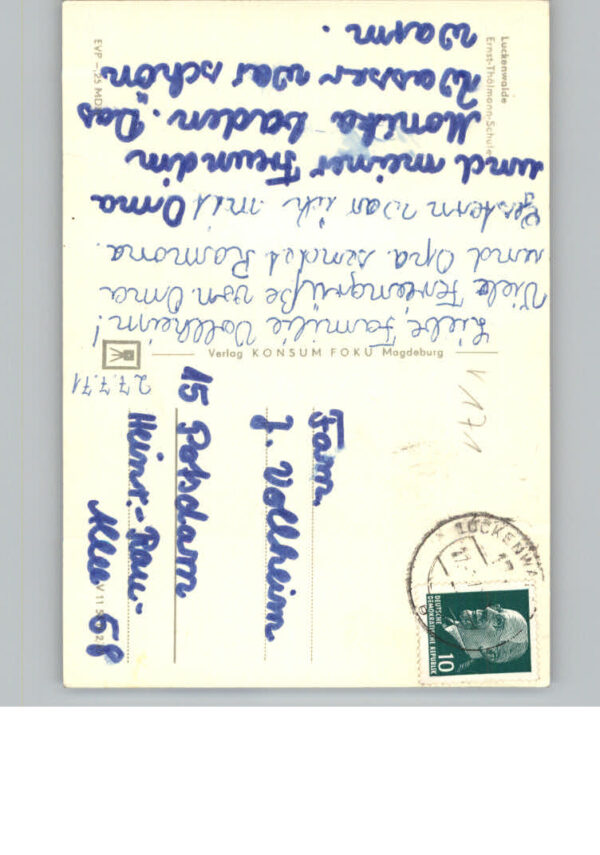 Luckenwalde
Ernst-Thälmann-Schule
Liebe Familie Vollheim!
Viele Feriengrüße von Oma
und Opa sendet Ramona.
Gestern war ich mit Oma
und meiner Freundin
Monika baden. Das
Wasser war schön
warm.
EVP -,25 MDN
Verlag KONSUM FOKU Magdeburg
27.7.71
Fam.
J. Vollheim
15 Potsdam
Heinr.-Rau-
Allee 68
V 171
LUCKENWA
17
DEUTSCHE
DEMOKRATISCHE REPUBLIK
10
V 11